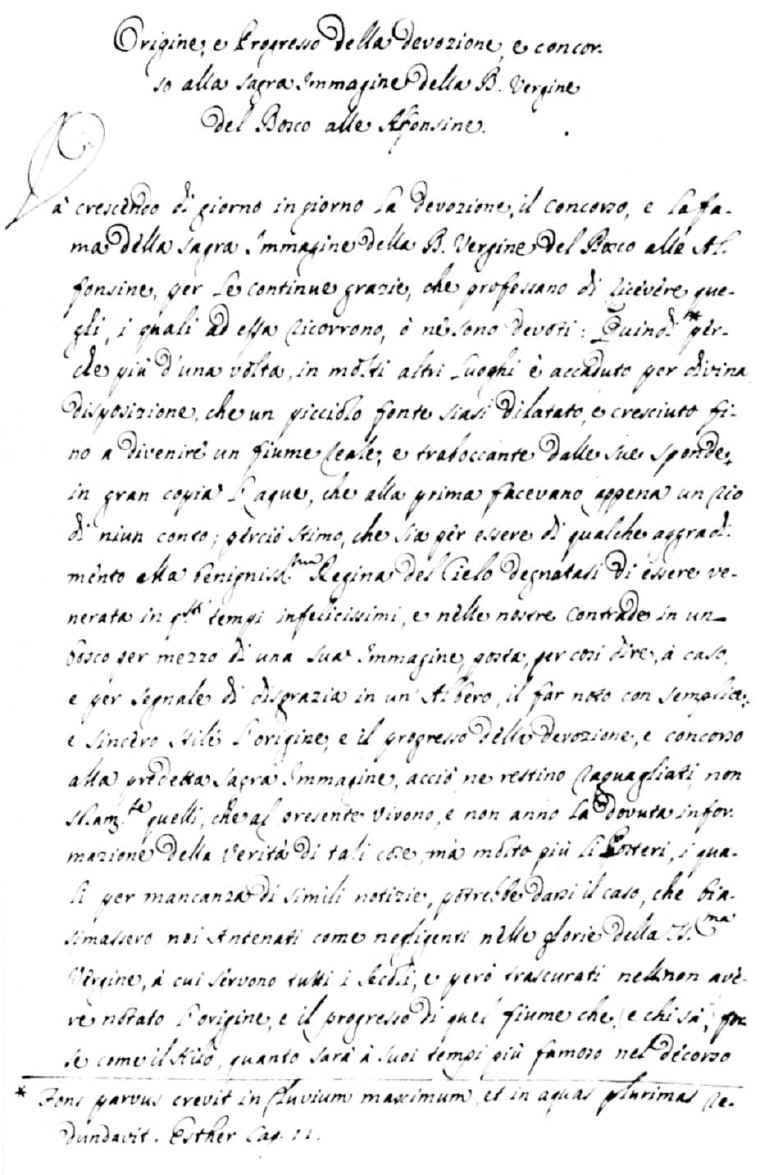 Origine, e Progresso della devozione, e concor-
so alla sagra Immagine della B. Vergine
del Bosco alle Afonsine.
Và crescendo di giorno in giorno la devozione, il concorso, e la fa-
ma della sagra Immagine della B. Vergine del Bosco alle Al-
fonsine, per le continue grazie, che professano di ricevere que-
gli, i quali ad essa ricorrono, ò ne sono devoti: Quindi * per-
che più d'una volta, in molti altri luoghi è accaduto per divina
disposizione, che un picciolo fonte siasi dilatato, e cresciuto fi-
no a divenire un fiume reale, e traboccante dalle sue sponde,
in gran copia l'aque, che alla prima facevano appena un rio
di niun conto; perciò stimo, che sia per essere di qualche aggradi-
mento alla benigniss.ma Regina del Cielo degnatasi di essere ve-
nerata in q.sti tempi infelicissimi, e nelle nostre contrade in un
bosco per mezzo di una sua Immagine, posta, per così dire, à caso,
e per segnale di disgrazia in un' Albero, il far noto con semplice,
e sincero stile l'origine, e il progresso della devozione, e concorso
alla predetta sagra Immagine, acciò ne restino raguagliati non
solam.te quelli, che al presente vivono, e non anno la dovuta infor-
mazione della verità di tali cose, mà molto più li Posteri, i qua-
li per mancanza di simili notizie, potrebbe darsi il caso, che bia-
simassero noi Antenati come negligenti nelle glorie della SS.ma
Vergine, à cui servono tutti i secoli, e però trascurati nel non ave-
re notato l'origine, e il progresso di quel fiume che (e chi sà) for-
se come il Nilo, quanto sarà à suoi tempi più famoso nel decorso
* Fons parvus crevit in fluvium maximum, et in aquas plurimas re-
dundavit. Esther Cap. 11.